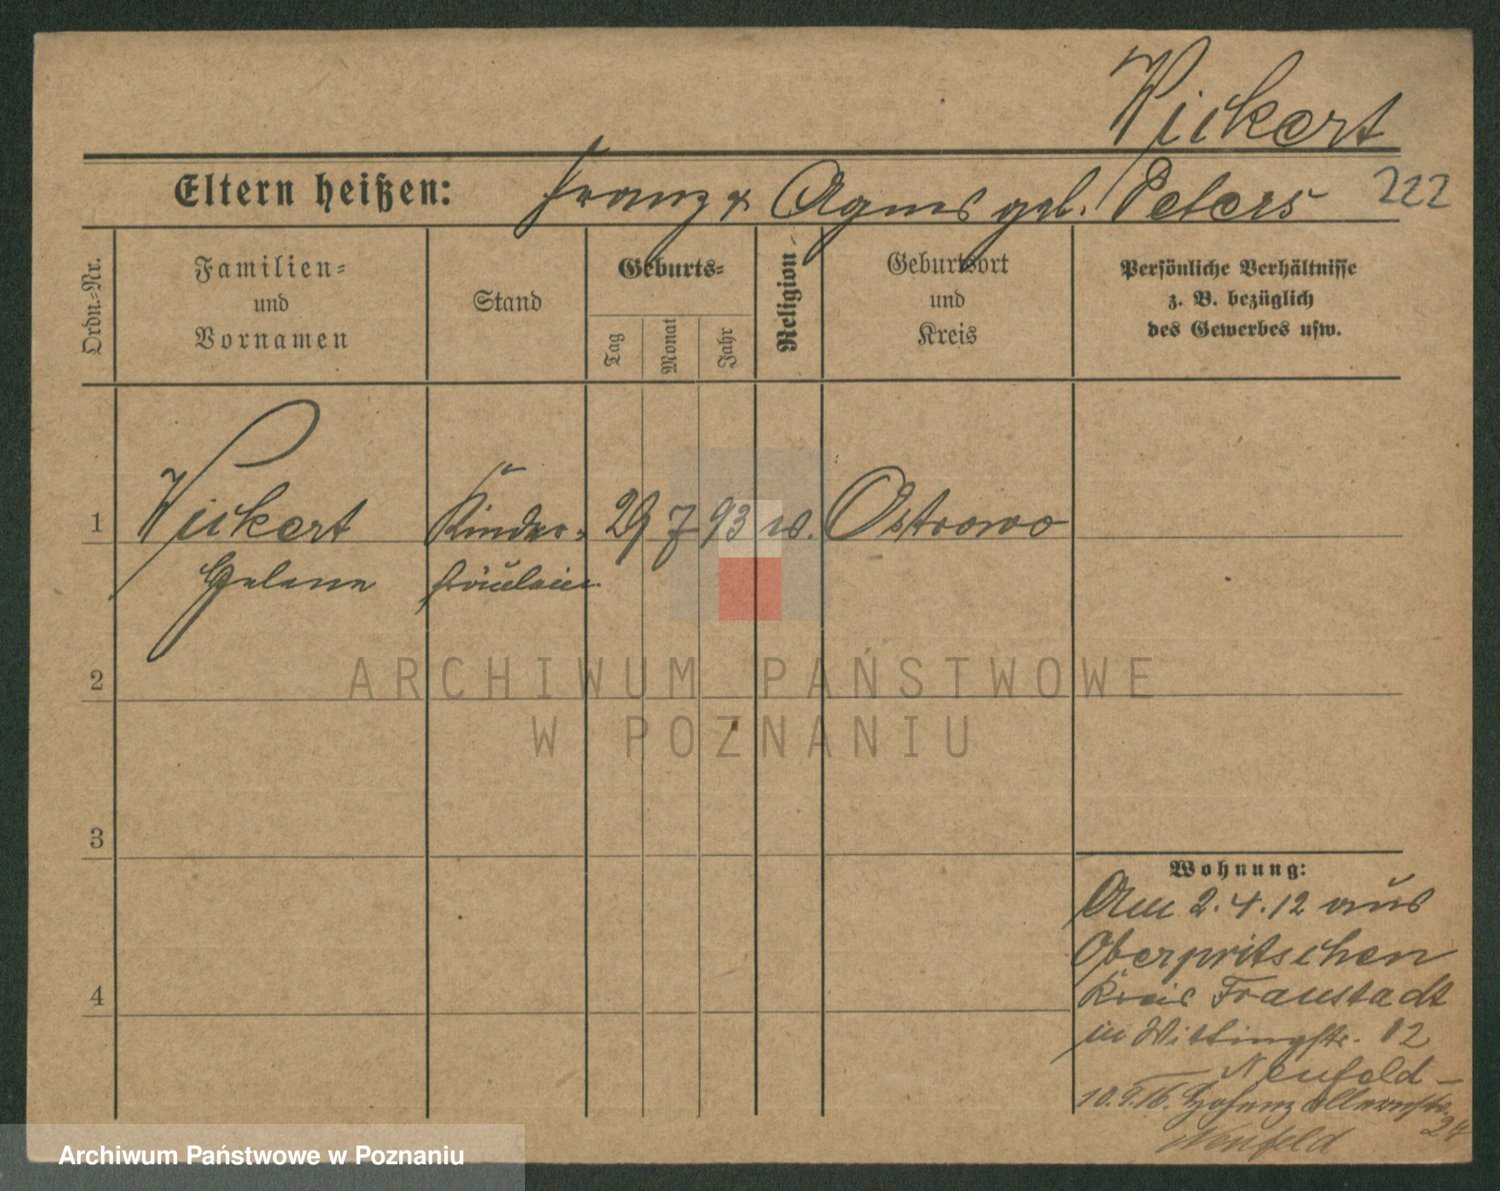 Wickert
Eltern heißen: Franz & Agnes geb. Peters 222
Ordn.-Nr.
Familien-
und
Vornamen
Stand
Geburts-
Tag
Monat
Jahr
Religion
Geburtsort
und
Kreis
Persönliche Verhältnisse
z. B. bezüglich
des Gewerbes usw.
1 Wickert Kinder- 29 7 93 Ostrowo
Helene fräulein
2
3
4
Wohnung:
Am 2.4.12 aus
Oberpritschen
Kreis Fraustadt
in Wittingstr. 12
Neufeld
10.8.16. Hohenzollernstr.
24
Neufeld
ARCHIWUM PAŃSTWOWE
W POZNANIU
Archiwum Państwowe w Poznaniu